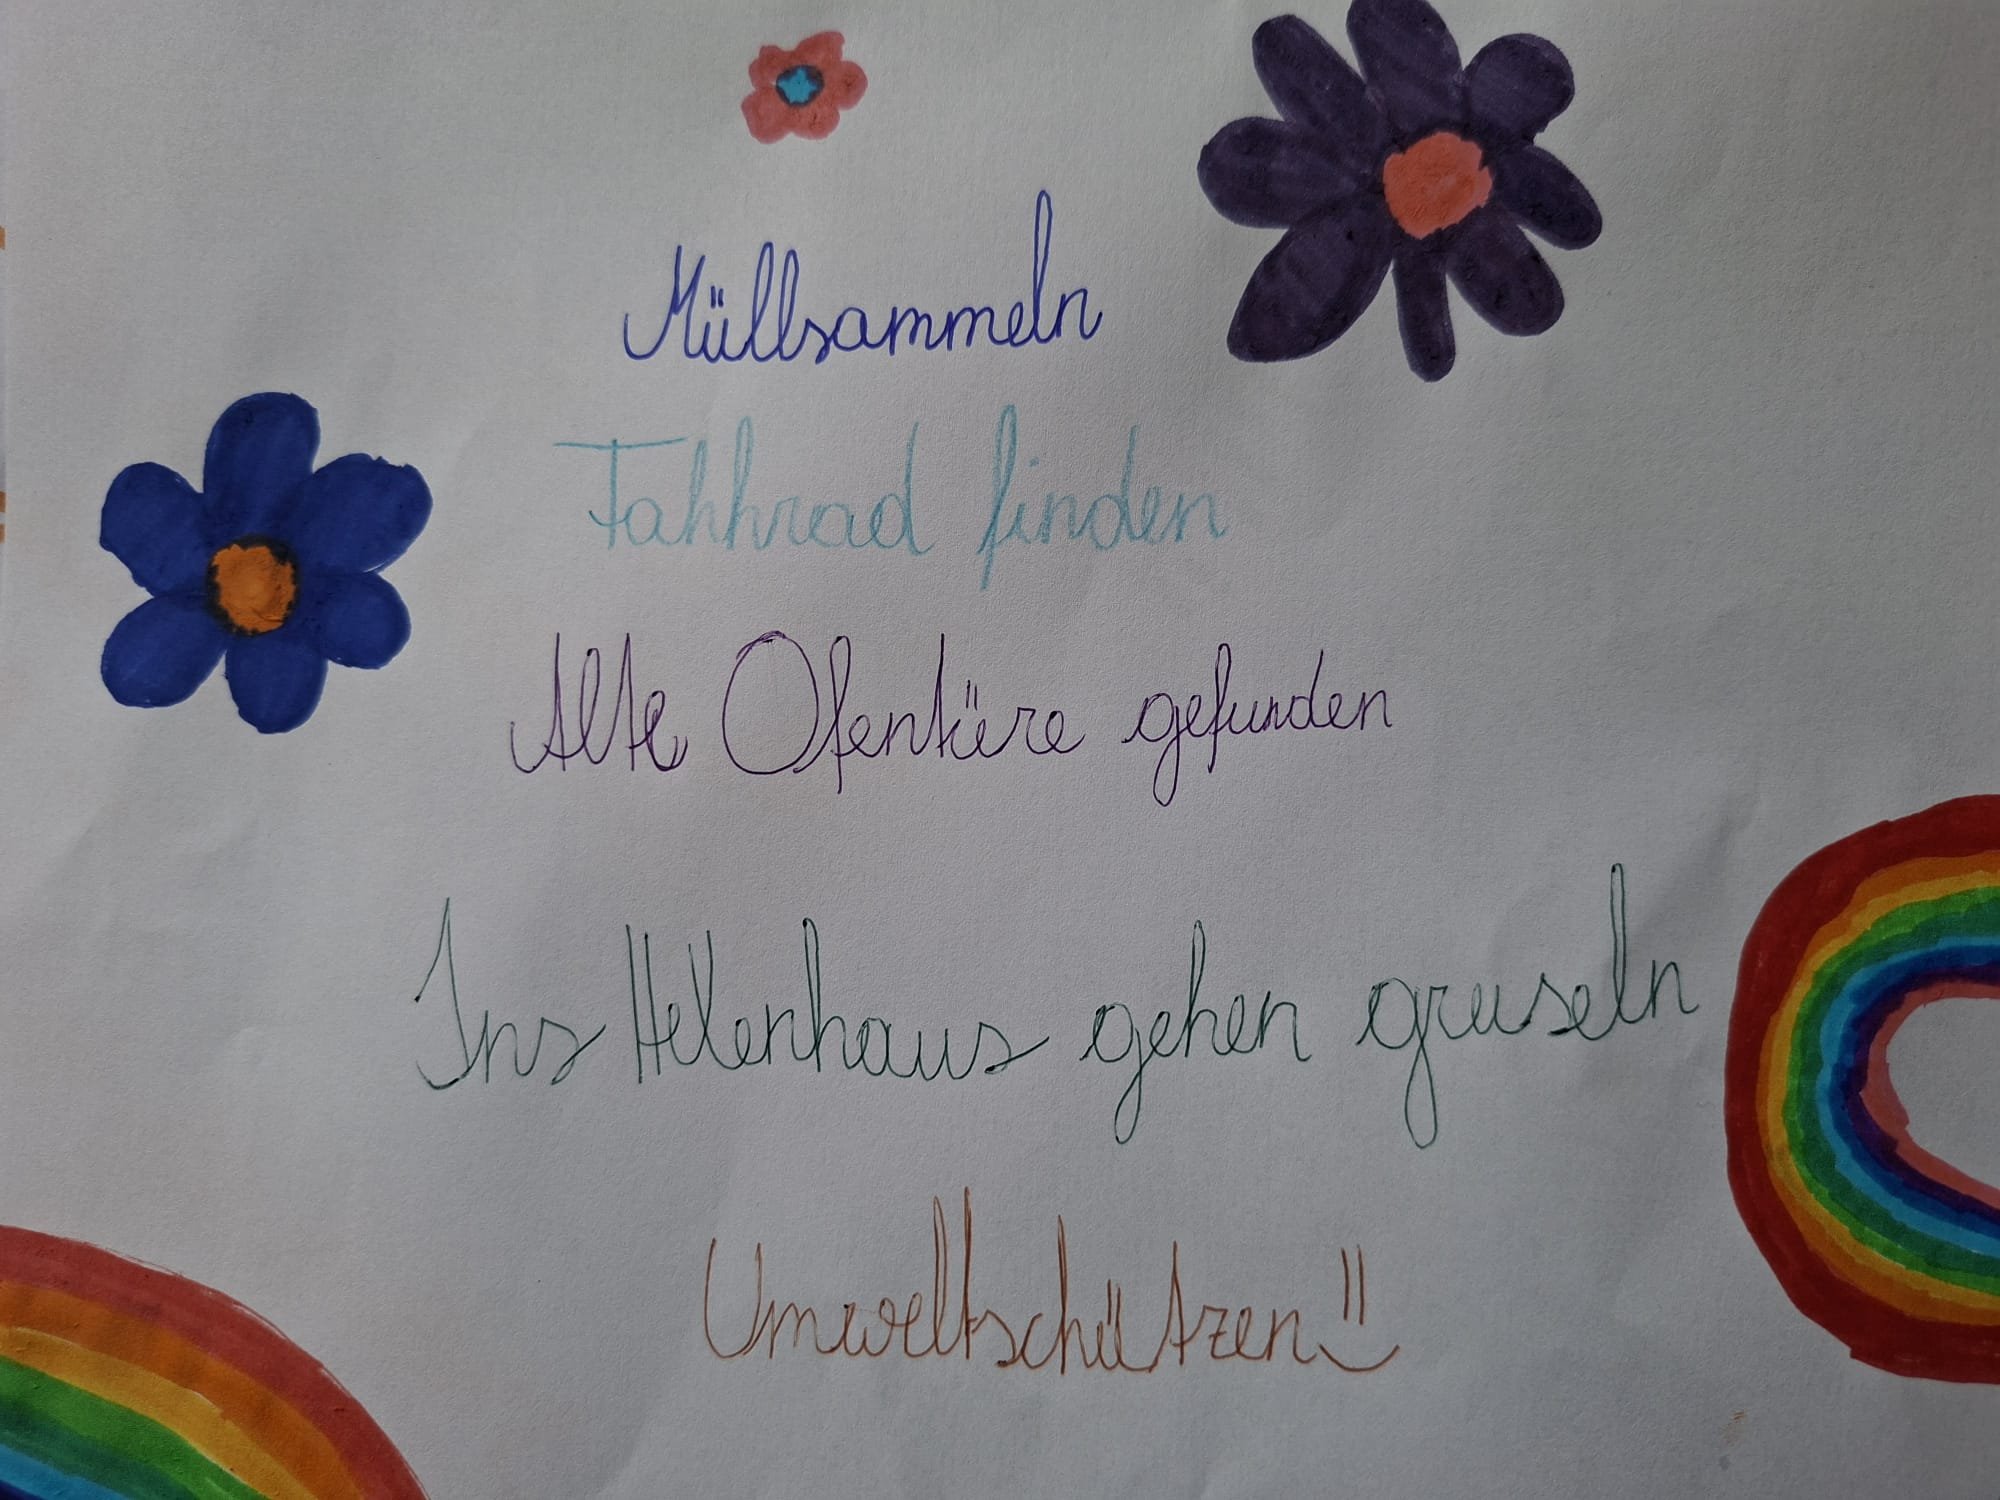 Müllsammeln
Fahhrad finden
Alte Ofentüre gefunden
Ins Hexenhaus gehen gruseln
Umweltschützen